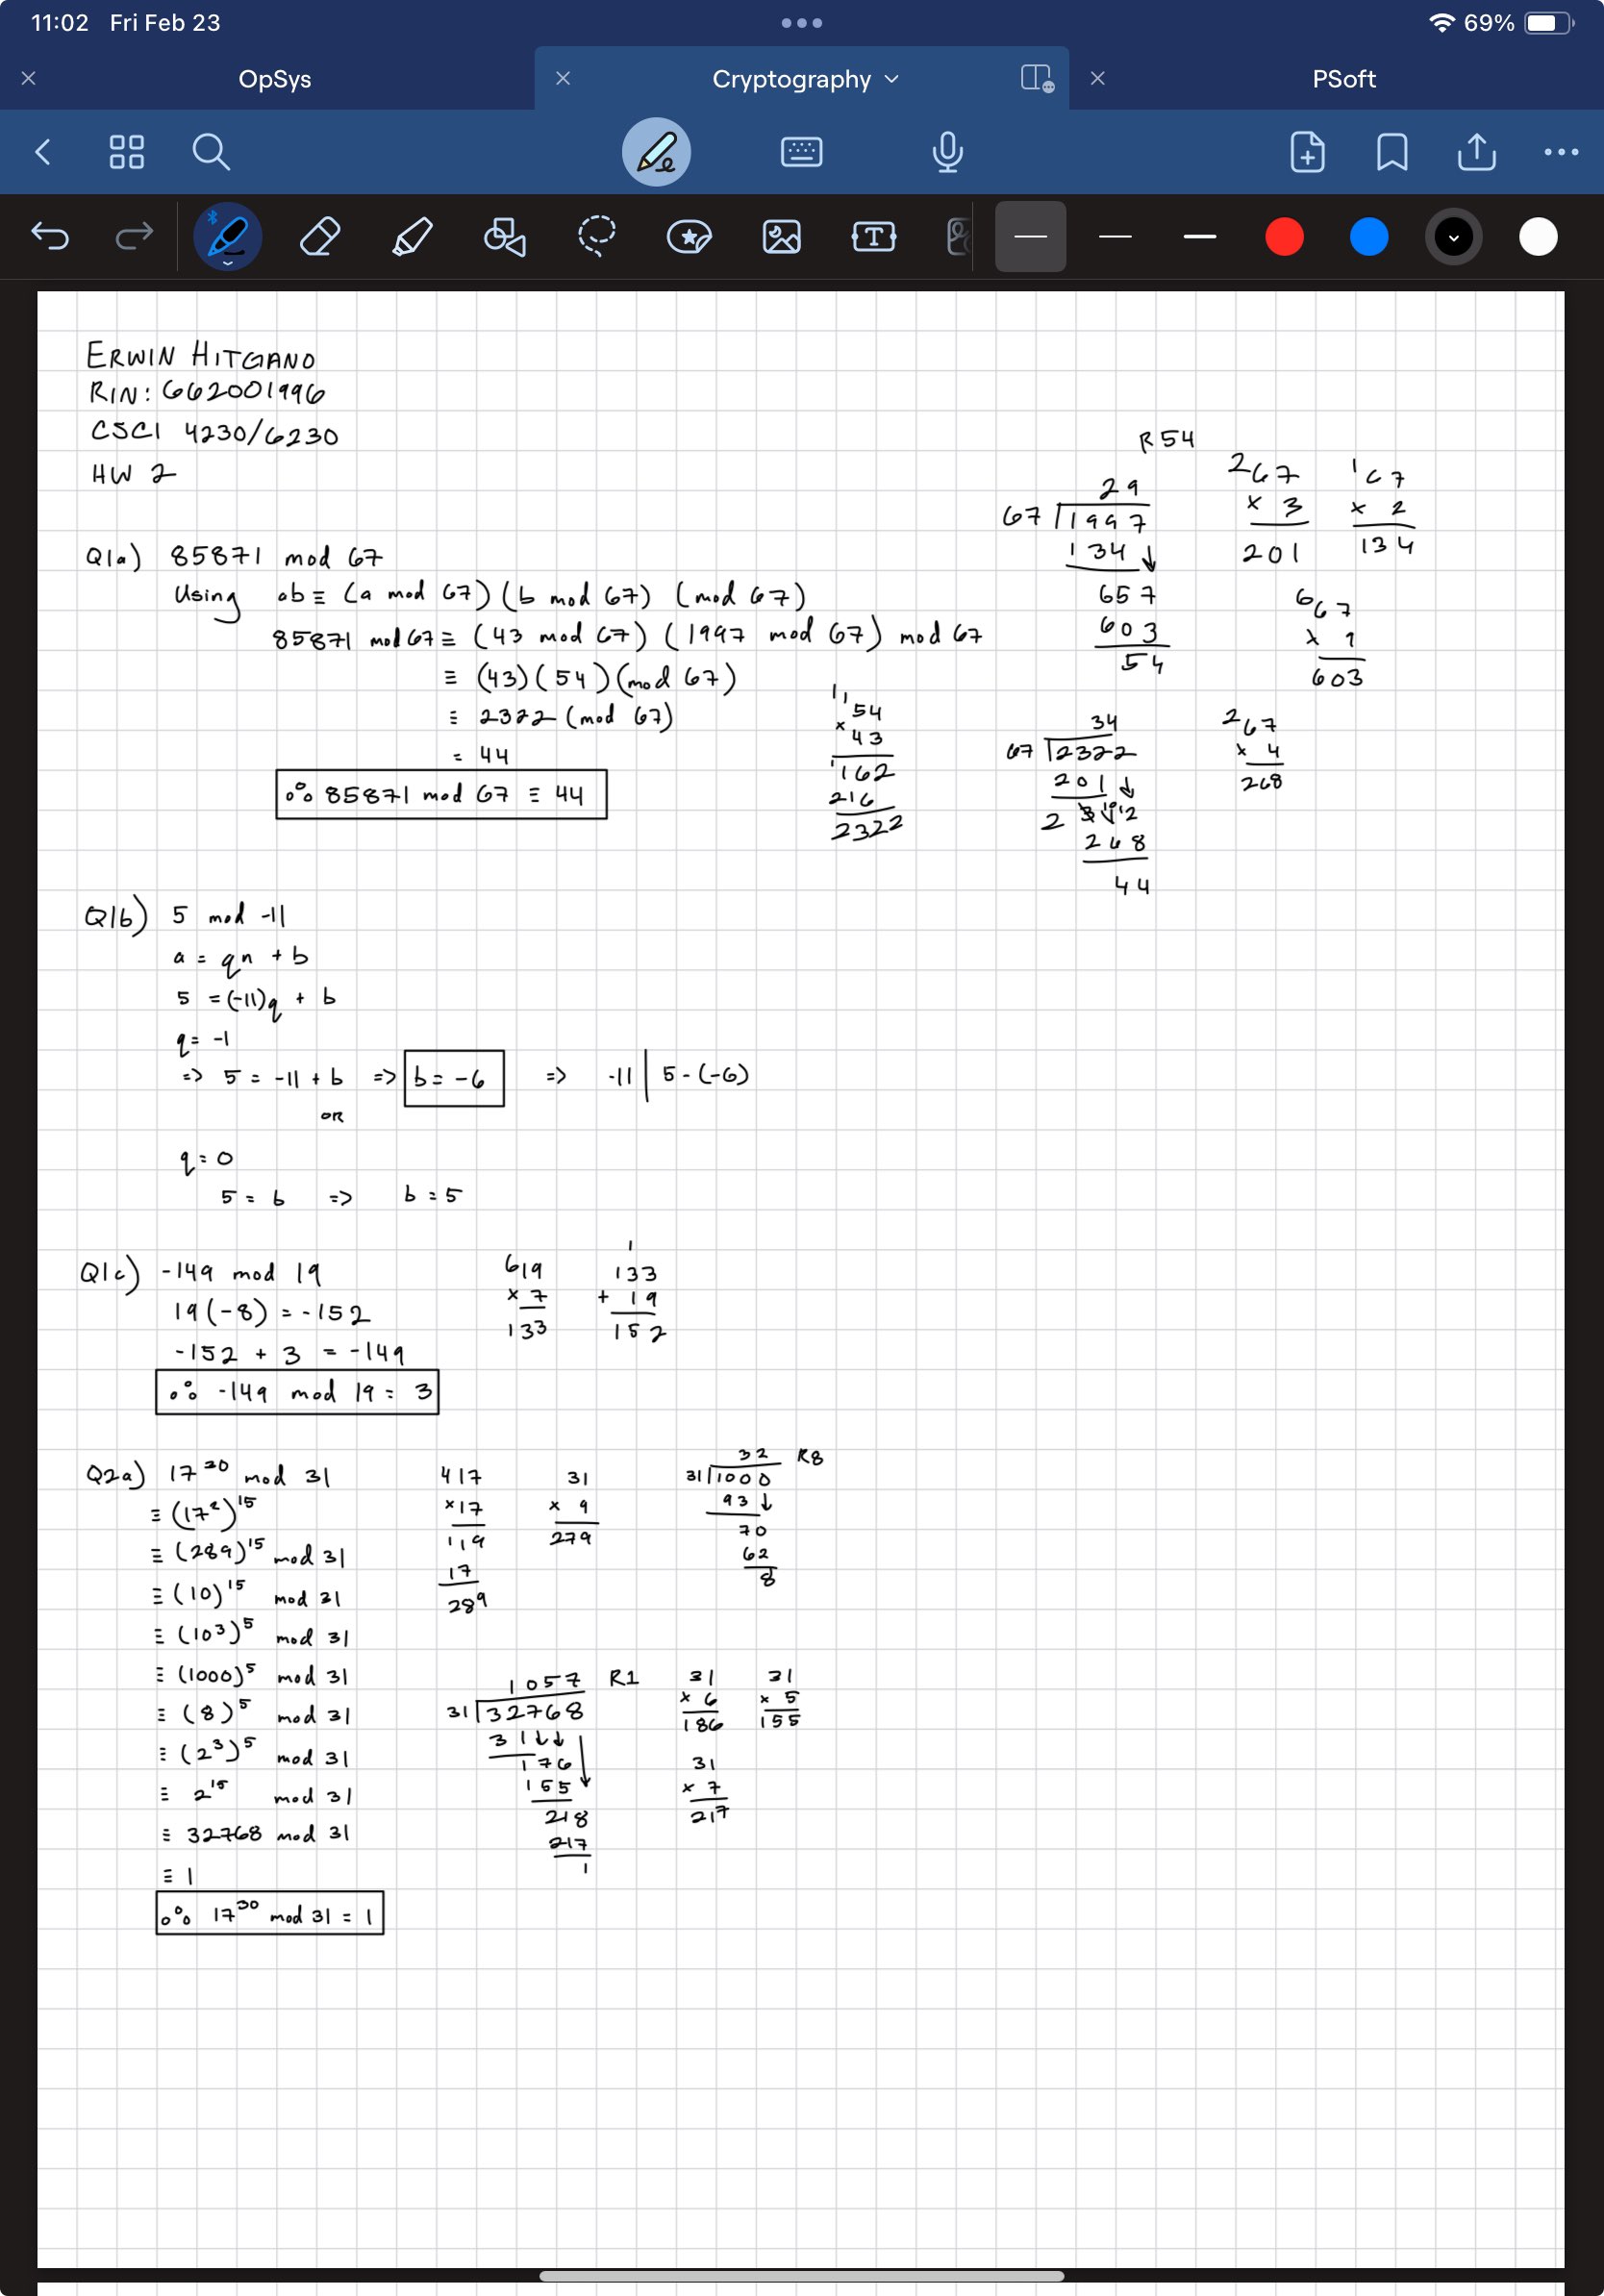 11:02 Fri Feb 23
69%
OpSys
Cryptography
PSoft
ERWIN HITGANO
RIN: 662001996
CSCI 4230/6230
HW 2
Q1a) 85871 mod 67
Using ab ≡ (a mod 67)(b mod 67) (mod 67)
85871 mod 67 ≡ (43 mod 67)(1997 mod 67) mod 67
≡ (43)(54)(mod 67)
≡ 2322 (mod 67)
= 44
∴ 85871 mod 67 ≡ 44
R54
29
67 1997
134 ↓
657
603
54
2 67
× 3
201
1 67
× 2
134
6 67
× 9
603
11
54
× 43
1 162
216
2322
34
67 2322
201 ↓
2 3 10 12
268
44
2 67
× 4
268
Q1b) 5 mod -11
a = qn + b
5 = (-11)q + b
q = -1
=> 5 = -11 + b => b = -6 => -11 | 5 - (-6)
OR
q = 0
5 = b => b = 5
Q1c) -149 mod 19
19(-8) = -152
-152 + 3 = -149
∴ -149 mod 19 = 3
6 19
× 7
133
1
133
+ 19
152
Q2a) 17³⁰ mod 31
≡ (17²)¹⁵
≡ (289)¹⁵ mod 31
≡ (10)¹⁵ mod 31
≡ (10³)⁵ mod 31
≡ (1000)⁵ mod 31
≡ (8)⁵ mod 31
≡ (2³)⁵ mod 31
≡ 2¹⁵ mod 31
≡ 32768 mod 31
≡ 1
∴ 17³⁰ mod 31 = 1
4 17
× 17
119
17
289
31
× 9
279
32 R8
31 1000
93 ↓
70
62
8
1057 R1
31 32768
31 ↓↓
176
155
218
217
1
31
× 6
186
31
× 5
155
31
× 7
217